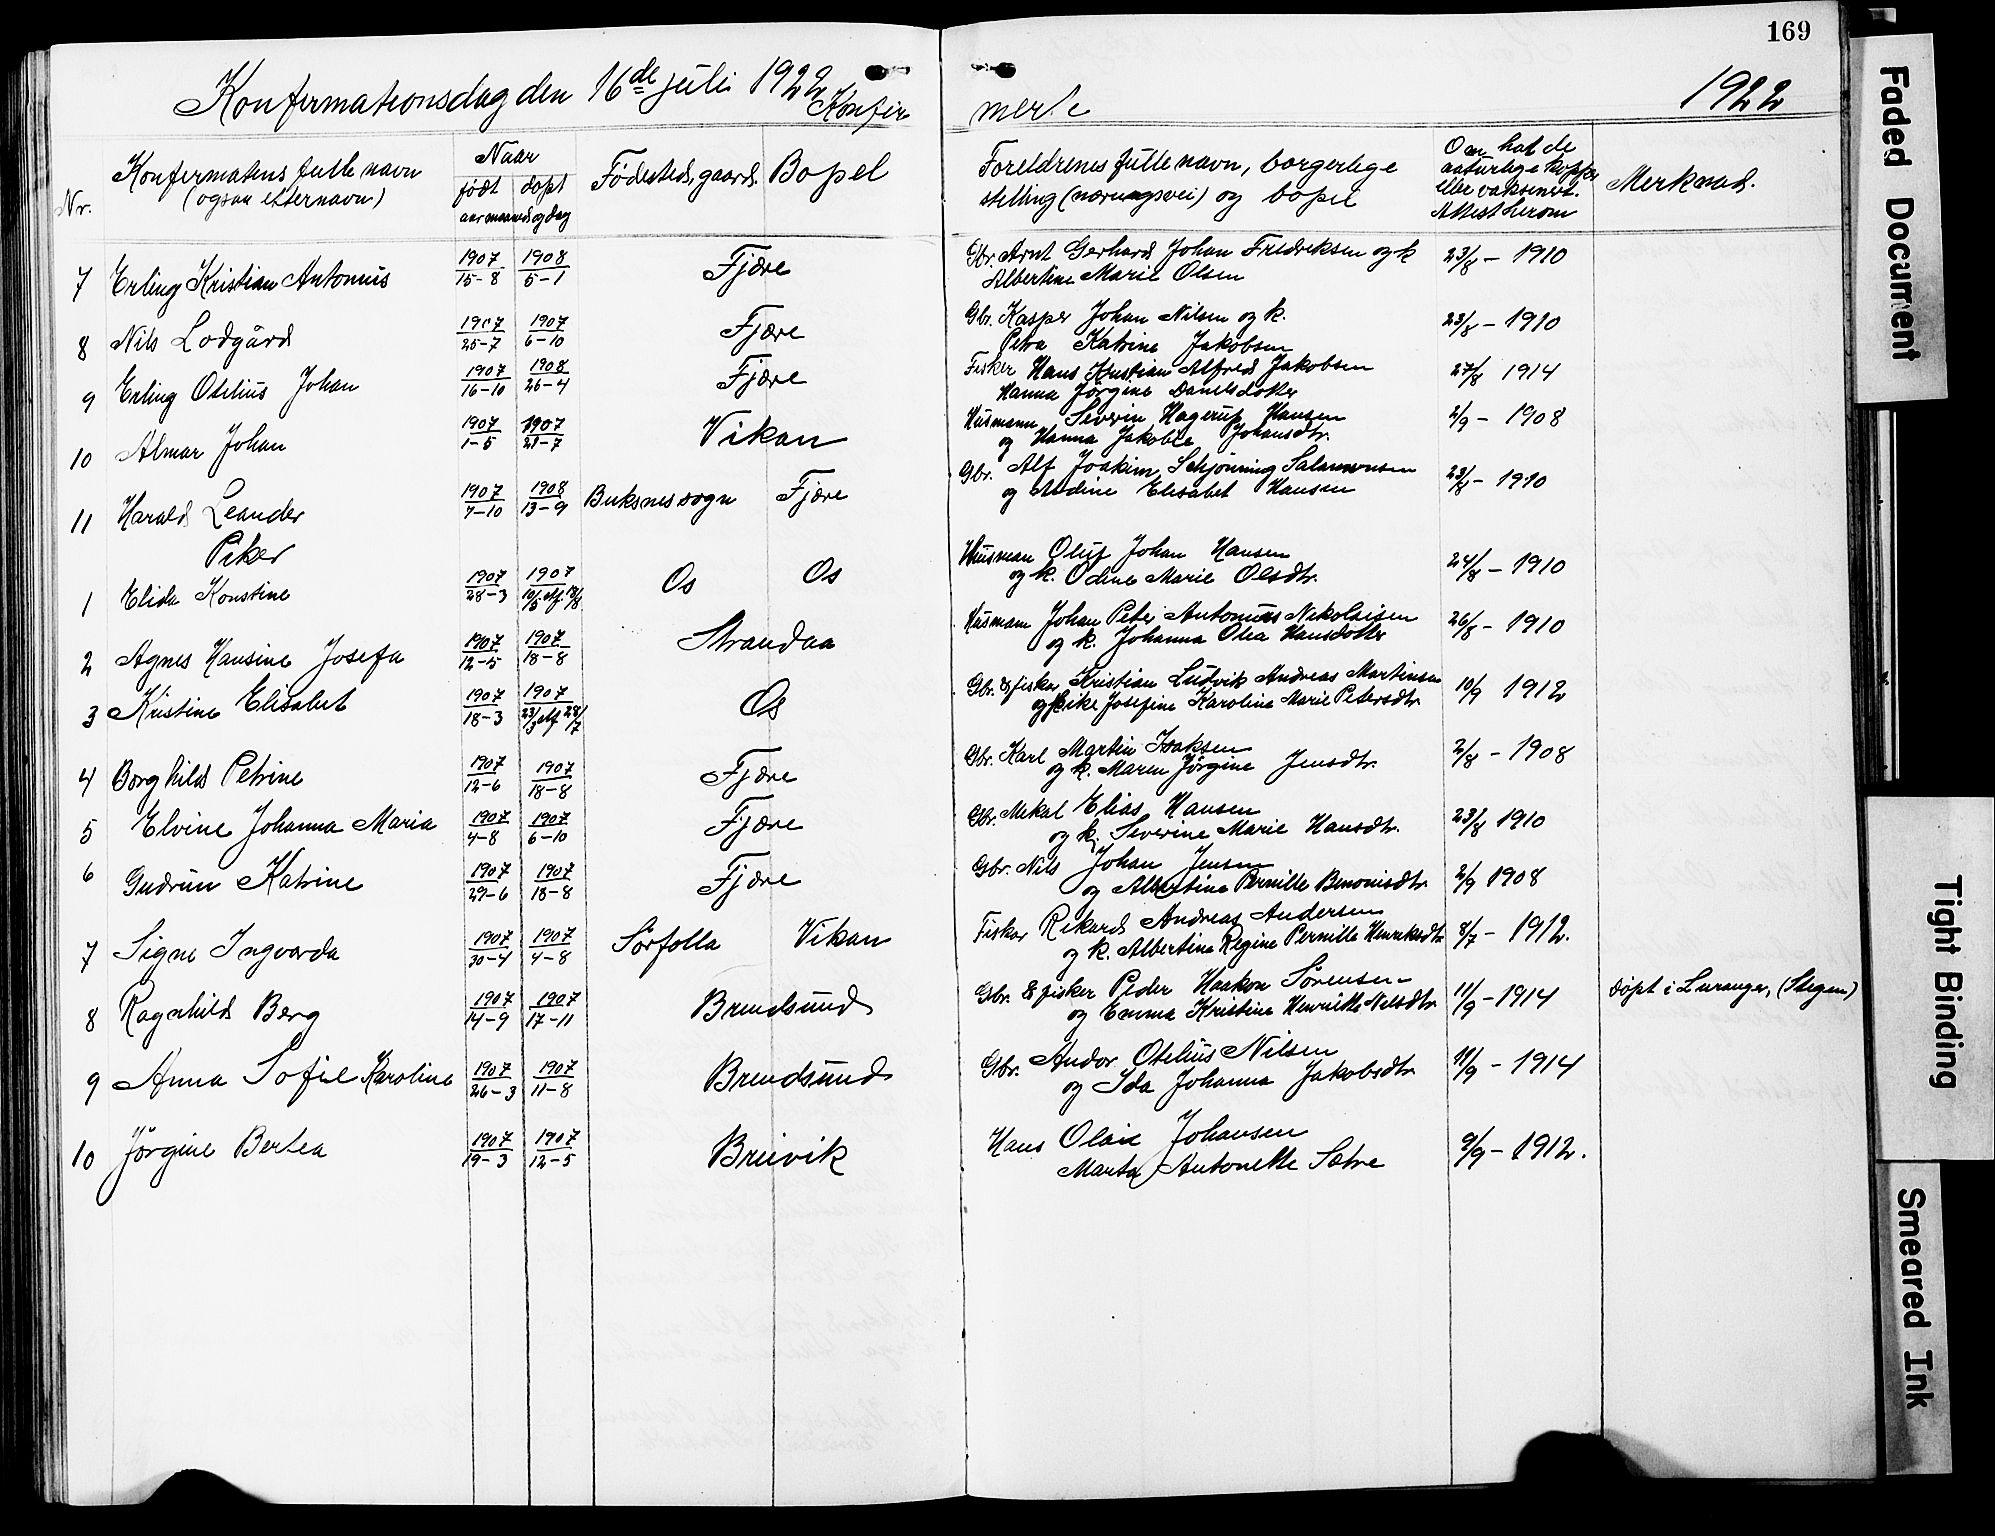 169
Konfirmationsdag den 16de juli 1922 Konfir merte 1922
Nr. Konfirmatens fulle navn (ogsaa etternavn) Naar født døpt aar maaned og dag Fødested, gaard. Bopel Foreldrenes fulle navn, borgerlege stilling (næringsvei) og bopel Om hat de naturlege kopper eller vaksinert. Attest herom Merknad.
7 Erling Kristian Antonius 1907 15-8 1908 5-1 Fjære Gbr. Arnt Gerhard Johan Fredriksen og k
Albertine Marie Olsen 23/8 - 1910
8 Nils Lodgård 1907 25-7 1907 6-10 Fjære Gbr. Kasper Johan Nilsen og k.
Petra Katrine Jakobsen 23/8 - 1910
9 Erling Otelius Johan 1907 16-10 1908 26-4 Fjære Fisker Hans Kristian Alfred Jakobsen
Hanna Jørgine Danelsdotter 27/8 1914
10 Almar Johan 1907 1-5 1907 21-7 Vikan Husmann Severin Hagerup Hansen
og Hanna Jakobea Johansdtr. 2/9 - 1908
11 Harald Leander 1907 7-10 1908 13-9 Buksnes sogn Fjære Gbr. Alf Joakim Schjønning Salamonsen
og Andine Elisabet Hansen 23/8 - 1910
Piker
1 Elida Konstine 1907 28-3 1907 10/5 stf. 18/8 Os Os Husman Oluf Johan Hansen
og k. Odine Marie Olsdtr. 24/8 - 1910
2 Agnes Hansine Josefa 1907 12-5 1907 18-8 Strandaa Husmann Johan Peter Antonius Nikolaisen
og k. Johanna Olea Hansdotter 26/8 - 1910
3 Kristine Elisabet 1907 18-3 1907 23/3 stf 28/7 Os Gbr. & fisker Kristian Ludvik Andreas Martinsen
og pike Josefine Karoline Marie Petersdtr 10/9 1912
4 Borghild Petrine 1907 12-6 1907 18-8 Fjære Gbr. Karl Martin Isaksen
og k. Maren Jørgine Jensdtr. 2/8 - 1908
5 Elvine Johanna Maria 1907 4-8 1907 6-10 Fjære Gbr. Mekal Elias Hansen
og k. Severine Marie Hansdtr. 23/8 1910
6 Gudrun Katrine 1907 29-6 1907 18-8 Fjære Gbr. Nils Johan Jensen
og Albertine Pernille Benonisdtr 2/9 1908
7 Signe Ingvarda 1907 30-4 1907 4-8 Sørfolla Vikan Fisker Rikard Andreas Andersen
og k. Albertine Regine Pernille Henriksdtr 8/7 - 1912.
8 Ragnhild Berg 1907 14-9 1907 17-11 Brendsund Gbr. & fisker Peder Haakon Sørensen
og Emma Kristine Henriette Nelsdtr 11/9 - 1914 døpt i Luranger, (Stegen)
9 Anna Sofie Karoline 1907 26-3 1907 11-8 Brendsund Gbr. Andor Otelius Nilsen
og Ida Johanna Jakobsdtr 11/9 - 1914
10 Jørgine Bertea 1907 19-3 1907 12-5 Breivik Hans Olai Johansen
Marta Antonette Sætre 9/9 - 1912.
Faded Document
Tight Binding
Smeared Ink